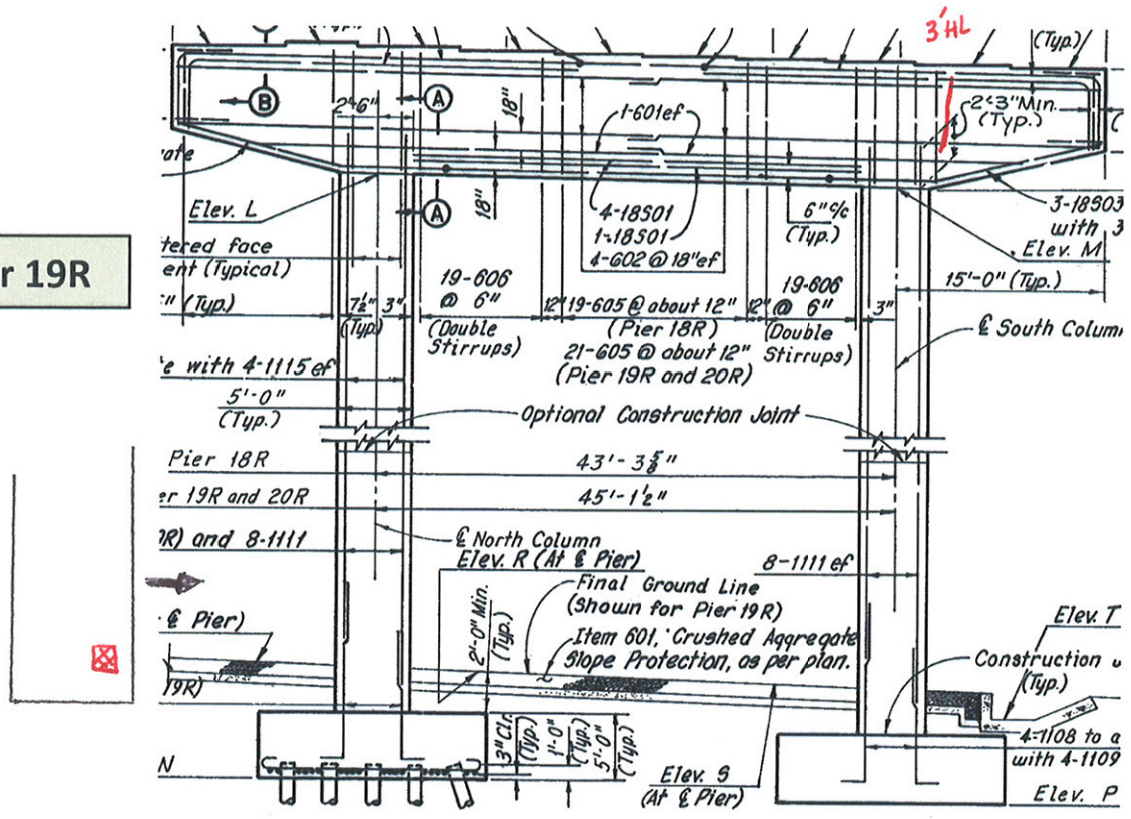 3'HL
(Typ.)
B
2'-6"
A
18"
1-601ef
2'-3" Min.
(Typ.)
Elev. L
A
18"
4-18S01
1-18S01
4-602 @ 18" ef
6" c/c
(Typ.)
3-18S03
with 3
Elev. M
tered face
ent (Typical)
r 19R
" (Typ.)
7½" 3"
(Typ.)
19-606
@ 6"
(Double
Stirrups)
12"
19-605 @ about 12"
(Pier 18R)
21-605 @ about 12"
(Pier 19R and 20R)
12"
19-606
@ 6"
(Double
Stirrups)
3"
15'-0" (Typ.)
℄ South Colum
e with 4-1115 ef
5'-0"
(Typ.)
Optional Construction Joint
Pier 18R
43'-3⅝"
er 19R and 20R
45'-1½"
℄ North Column
R) and 8-1111
Elev. R (At ℄ Pier)
8-1111 ef
Final Ground Line
(Shown for Pier 19R)
2'-0" Min.
(Typ.)
℄ Pier)
Item 601, Crushed Aggregate
Slope Protection, as per plan.
Elev. T
Construction
(Typ.)
19R)
3" Clr.
(Typ.)
1'-0"
5'-0"
(Typ.)
4-1108 to a
with 4-1109
N
Elev. S
(At ℄ Pier)
Elev. P